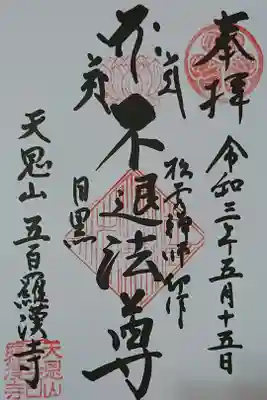 奉拝
令和三年五月十五日
松雲禅師作
不退法尊
目黒
天恩山 五百羅漢寺